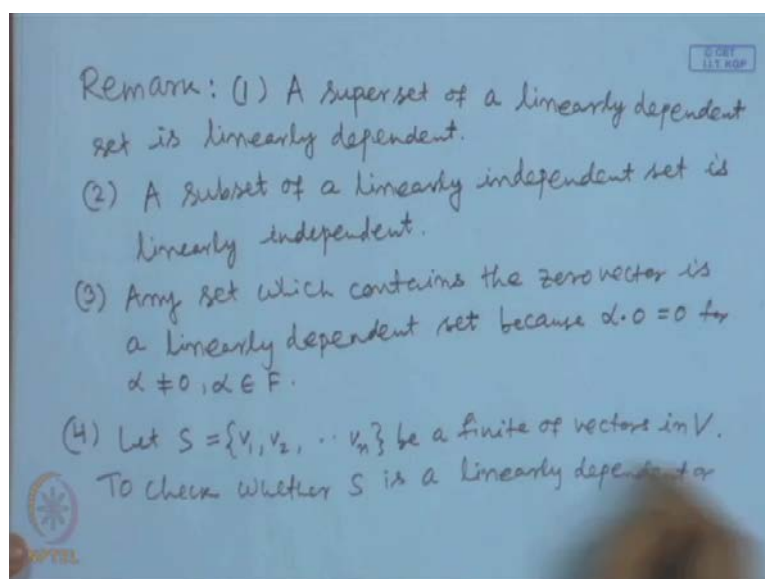 © CET
I.I.T. KGP
Remark: (1) A superset of a linearly dependent
set is linearly dependent.
(2) A subset of a linearly independent set is
linearly independent.
(3) Any set which contains the zero vector is
a linearly dependent set because α.0 = 0 for
α ≠ 0, α ∈ F.
(4) Let S = {v₁, v₂, .. vₙ} be a finite of vectors in V.
To check whether S is a linearly dependent or
NPTEL